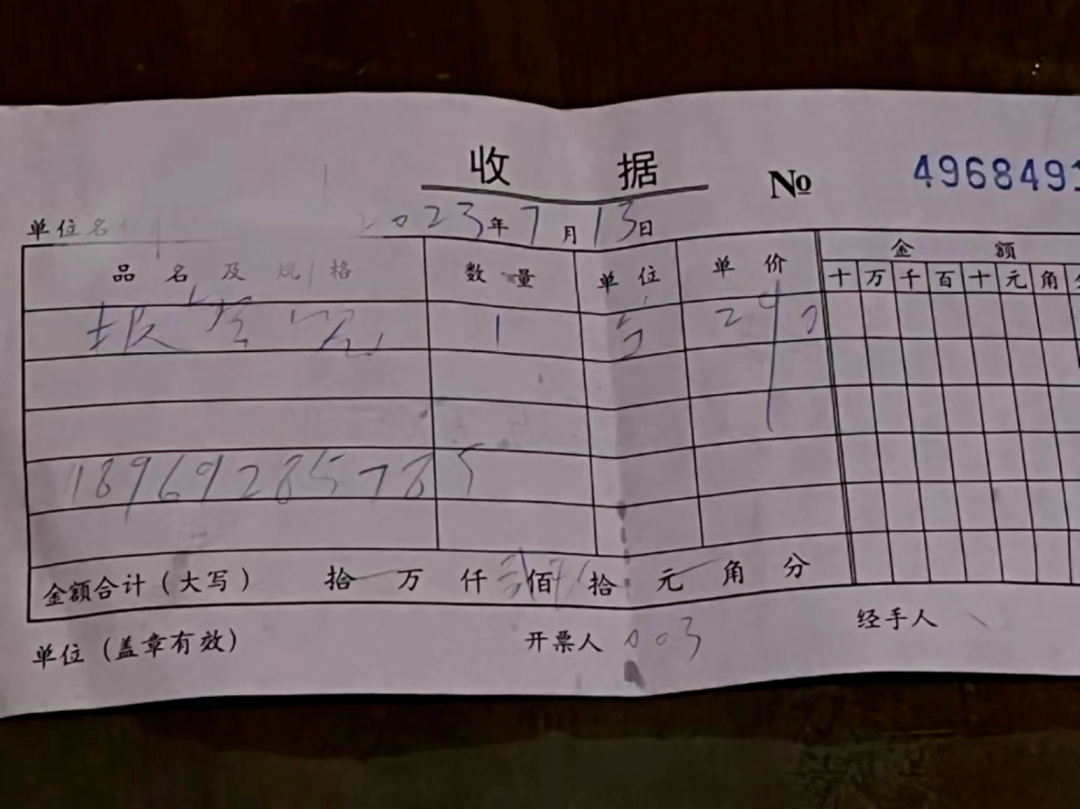 收 据 № 4968491
单位名 2023年7月13日
品名及规格 数量 单位 单价 金额
十万千百十元角分
1 290
18969285785
金额合计（大写） 拾 万 仟 贰佰 玖拾 元 角 分
单位（盖章有效） 开票人 003 经手人